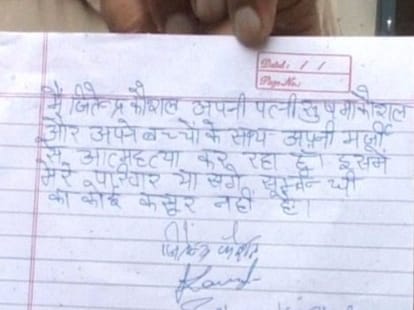 Dated: / /
Page No:
मैं जितेन्द्र कौशल अपनी पत्नी सुषमा कौशल
और अपने बच्चों के साथ अपनी मर्जी
से आत्महत्या कर रहा हूँ। इसमें
मेरे परिवार या सगे
का कोई कसूर नहीं है।
जितेन्द्र कौशल